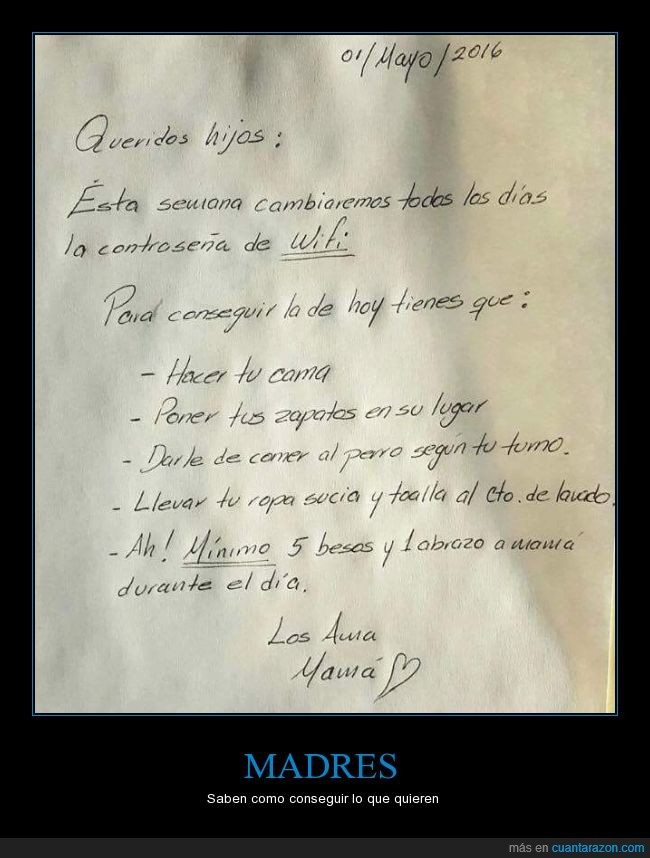 01/Mayo/2016
Queridos hijos:
Ésta semana cambiaremos todos los días
la contraseña de Wifi
Para conseguir la de hoy tienes que:
- Hacer tu cama
- Poner tus zapatos en su lugar
- Darle de comer al perro según tu turno.
- Llevar tu ropa sucia y toalla al cto. de lavado.
- Ah! Mínimo 5 besos y 1 abrazo a mamá
durante el día.
Los Ama
Mamá
MADRES
Saben como conseguir lo que quieren
más en cuantarazon.com